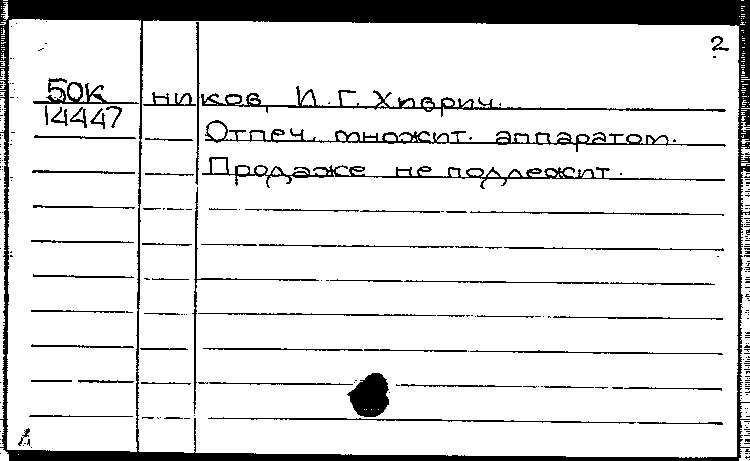 2
50К ников, И. Г. Хиврич.
14447
Отпеч. множит. аппаратом.
Продаже не подлежит.